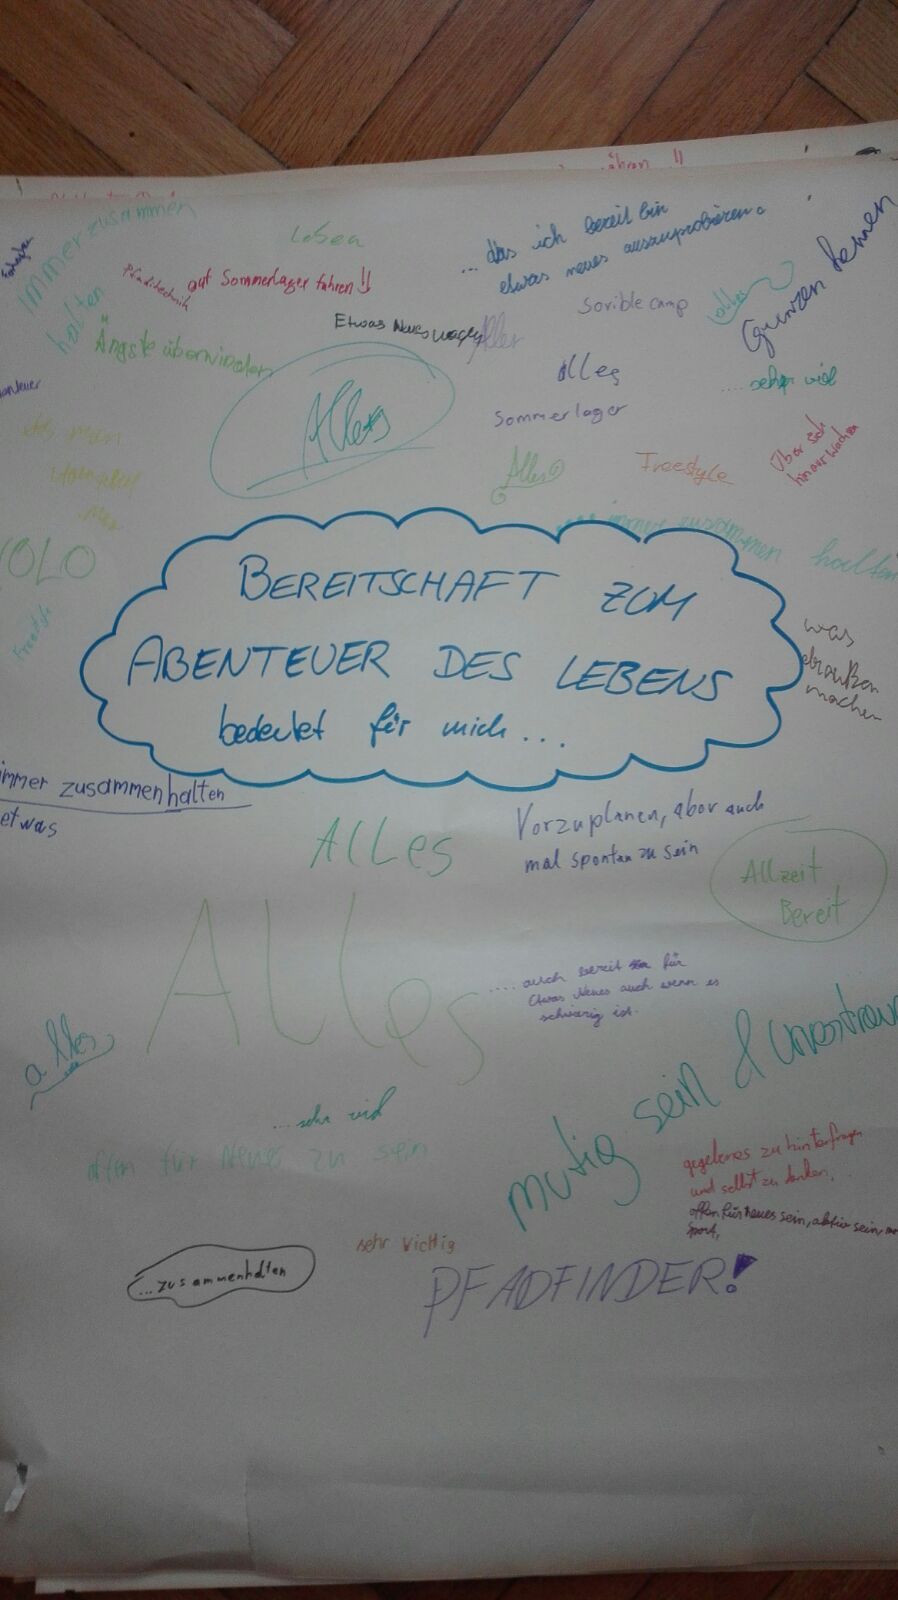 Immer zusammen
halten
Leben
... das ich bereit bin
etwas neues auszuprobieren.
Pfaditechnik
auf Sommerlager fahren !!
Etwas Neues wagen
Alles
Sorible camp
alles
Grenzen kennen
Ängste überwinden
Alles
alles
Sommerlager
.... sehr viel
Alles
Freestyle
Über sich
hinauswachsen
YOLO
immer zusammen halten
Freestyle
BEREITSCHAFT ZUM
ABENTEUER DES LEBENS
bedeutet für mich...
was
draußen
machen
immer zusammenhalten
etwas
ALLes
Vorzuplanen, aber auch
mal spontan zu sein
Allzeit
Bereit
Alles
.... auch bereit für
etwas Neues auch wenn es
schwierig ist.
alles
mutig sein &
...sehr viel
offen für Neues zu sein
gegebenes zu hinterfragen
und selbst zu denken,
offen für neues sein, aktiv sein,
Sport,
sehr wichtig
...zusammenhalten
PFADFINDER!